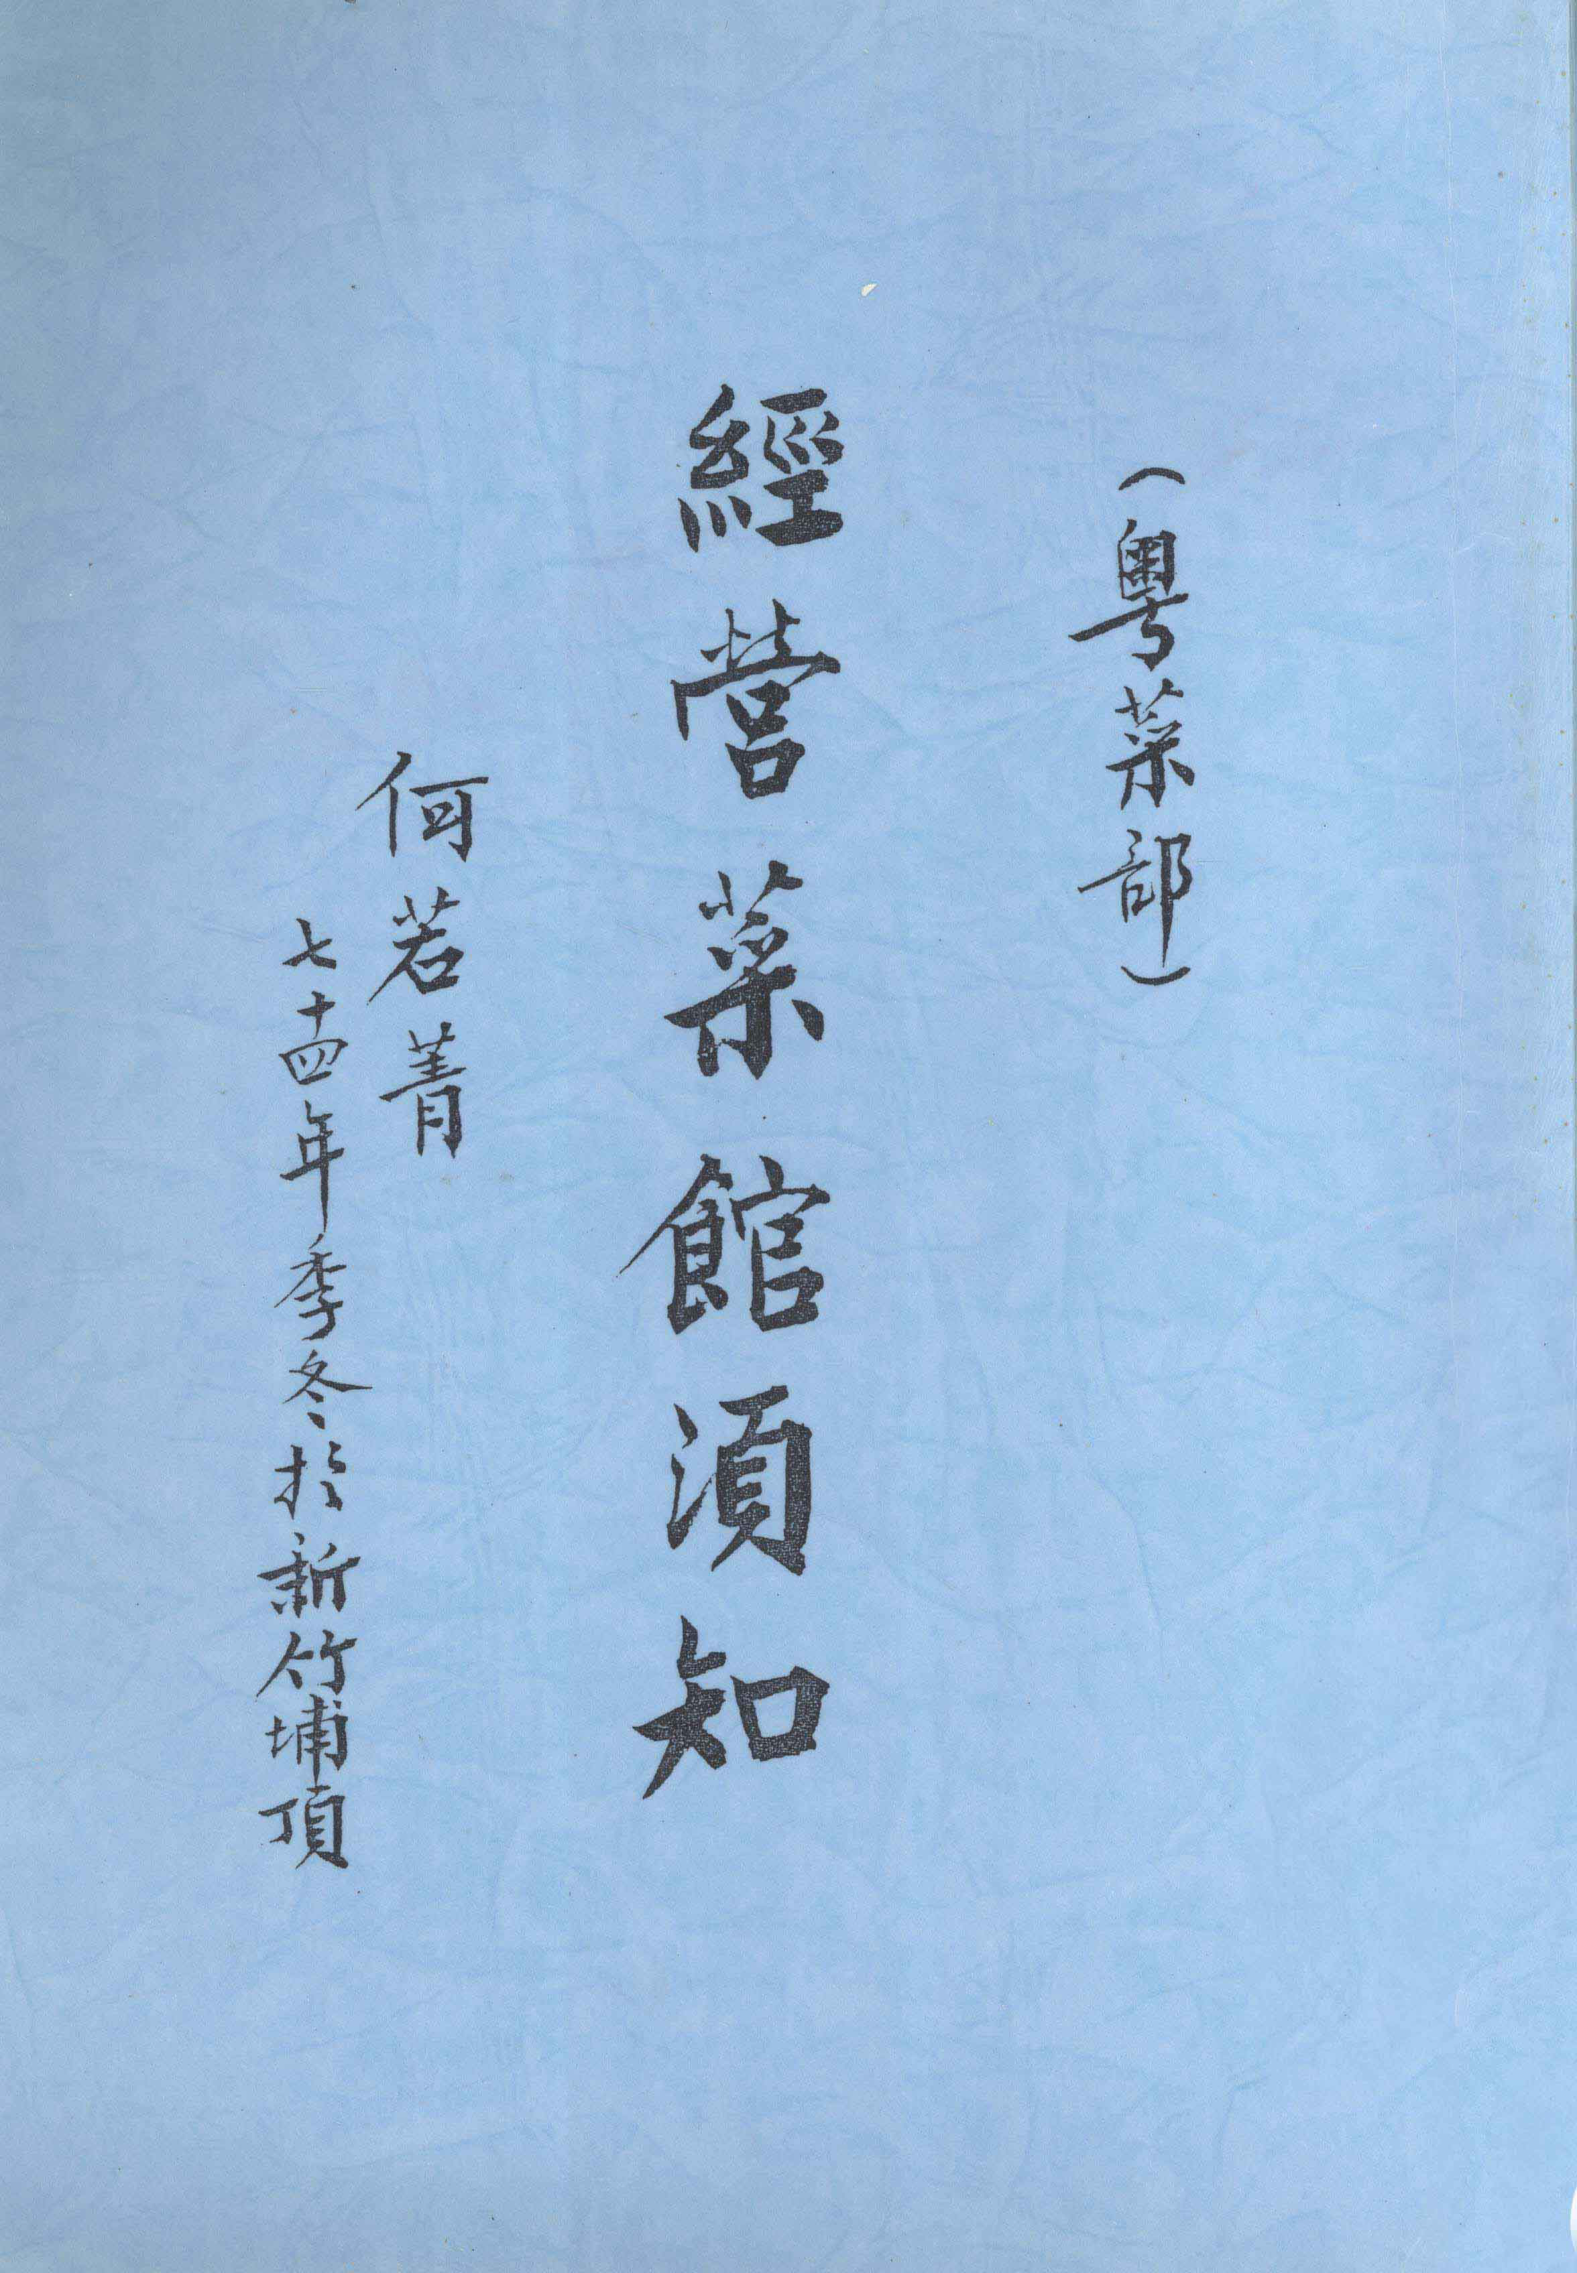 (粵菜部)
經營菜館須知
何若菁
七十四年季冬於新竹埔頂